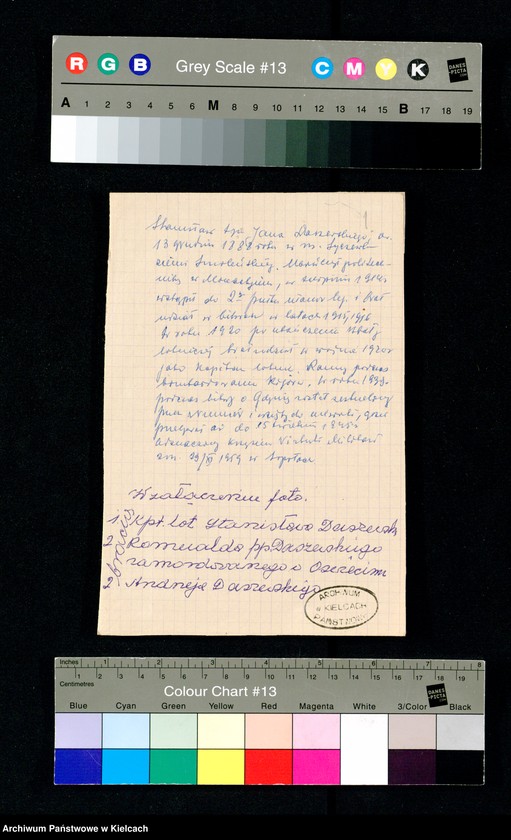 R G B Grey Scale #13 C M Y K DANES-PICTA.COM
A 1 2 3 4 5 6 M 8 9 10 11 12 13 14 15 B 17 18 19
1
Stanisław syn Jana Daszewskiego, ur.
13 grudnia 1888 roku w m.
ziemi Smoleńskiej.
w sierpniu 1914
wstąpił do 2go pułku i brał
udział w bitwach w latach 1915, 1916.
W roku 1920 po ukończeniu szkoły
lotniczej brał udział w wojnie 1920 r
jako kapitan lotnik. Ranny podczas
bombardowania Kijowa. W roku 1939
podczas bitwy o Gdynię został
przez Niemców i do niewoli, gdzie
przebywał aż do 15 1945 r
odznaczony krzyżem Virtuti Militari
zm. 29/XI 1959 w Sopotach
W załączeniu foto.
1 Kpt. lot Stanisława Daszewsk
2 Romualda pp. Daszewskiego
zamordowanego w Oświęcim
2 Andrzeja Daszewskiego
bracia
ARCHIWUM
w KIELCACH
PAŃSTWOWE
Inches 1 2 3 4 5 6 7 8
Centimetres 1 2 3 4 5 6 7 8 9 10 11 12 13 14 15 16 17 18 19
Colour Chart #13 DANES-PICTA.COM
Blue Cyan Green Yellow Red Magenta White 3/Color Black
Archiwum Państwowe w Kielcach